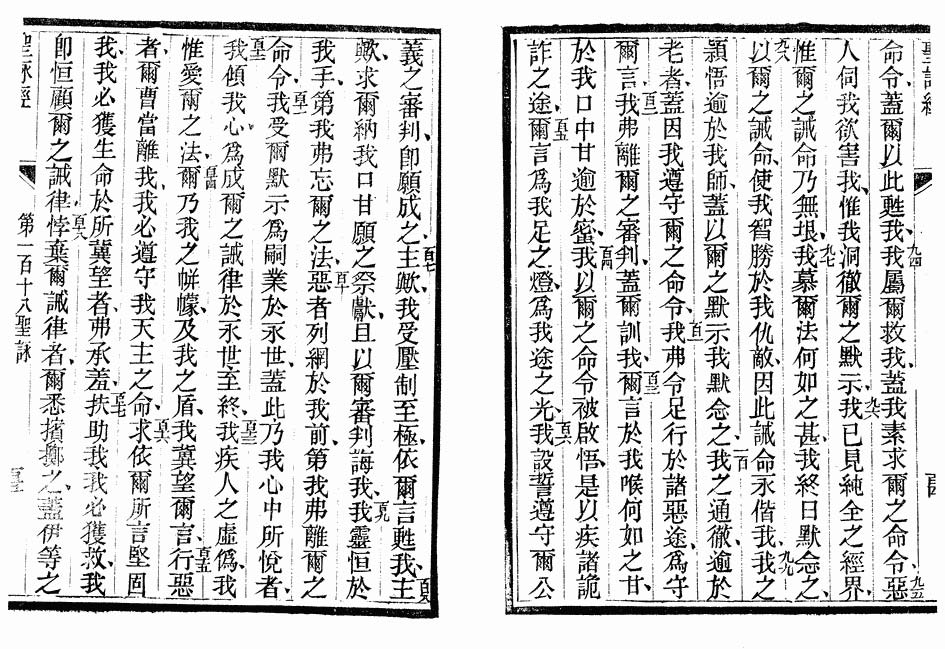 命令、蓋爾以此甦我、九四我屬爾、救我、蓋我素求爾之命令、九五惡
人伺我欲害我、惟我洞徹爾之默示、九六我已見純全之經界、
惟爾之誡命乃無垠、九七我慕爾法、何如之甚、我終日默念之、
九八以爾之誡命、使我智勝於我仇敵、因此誡命永偕我、九九我之
穎悟逾於我師、蓋以爾之默示、我默念之、一百我之通徹、逾於
老者、蓋因我遵守爾之命令、百一我弗令足行於諸惡途、為守
爾言、百二我弗離爾之審判、蓋爾訓我、百三爾言於我喉何如之甘、
於我口中甘逾於蜜、百四我以爾之命令被啟悟、是以疾諸詭
詐之途、百五爾言為我足之燈、為我途之光、百六我設誓遵守爾公
義之審判、卽願成之、百七主歟、我受壓制至極、依爾言甦我、百八主
歟、求爾納我口甘願之祭獻、且以爾審判誨我、百九我靈恒於
我手、第我弗忘爾之法、百十惡者列網於我前、第我弗離爾之
命令、百十一我受爾默示為嗣業於永世、蓋此乃我心中所悅者、
百十二我傾我心、為成爾之誡律於永世至終、百十三我疾人之虛偽、我
惟愛爾之法、百十四爾乃我之帡幪、及我之盾、我冀望爾言、百十五行惡
者、爾曹當離我、我必遵守我天主之命、百十六求依爾所言堅固
我、我必獲生命、於所冀望者、弗承羞、百十七扶助我、我必獲救、我
卽恒顧爾之誡律、百十八悖棄爾誡律者、爾悉擯擲之、蓋伊等之
聖詠經
第一百十八聖詠